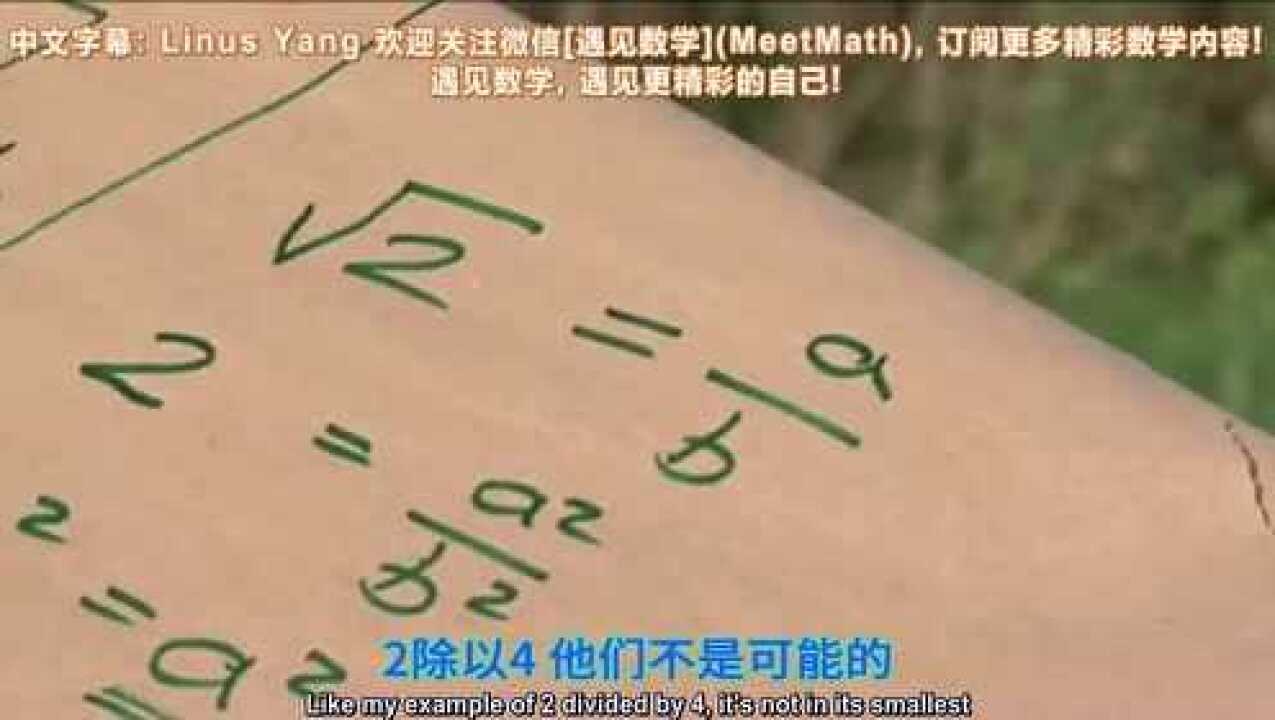 中文字幕: Linus Yang 欢迎关注微信[遇见数学](MeetMath), 订阅更多精彩数学内容!
遇见数学, 遇见更精彩的自己!
√2 = a/b
2 = a²/b²
² = a²
2除以4 他们不是可能的
Like my example of 2 divided by 4, it's not in its smallest